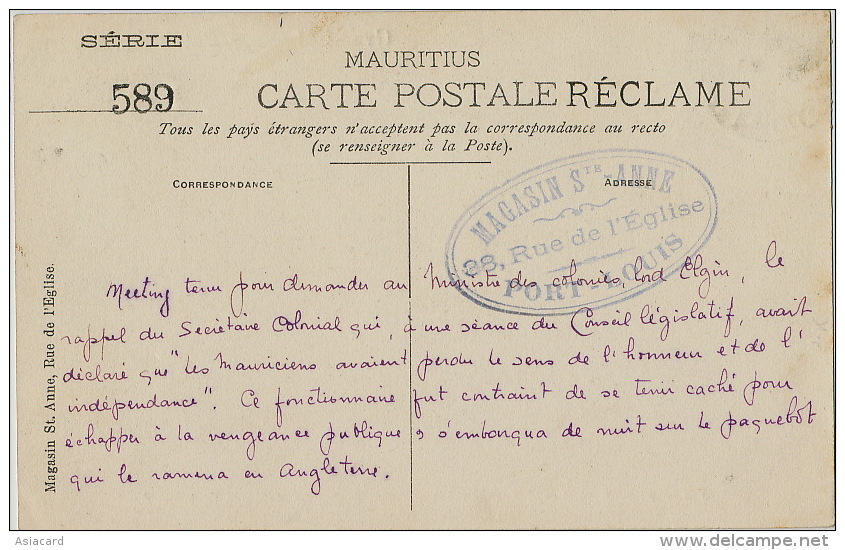 SÉRIE
589
MAURITIUS
CARTE POSTALE RÉCLAME
Tous les pays étrangers n'acceptent pas la correspondance au recto
(se renseigner à la Poste).
CORRESPONDANCE
ADRESSE
MAGASIN STE-ANNE
28, Rue de l'Église
PORT-LOUIS
Magasin St. Anne, Rue de l'Eglise.
Meeting tenu pour demander au Ministre des colonies, lord Elgin, le
rappel du Secrétaire Colonial qui, à une séance du Conseil législatif, avait
déclaré que "les Mauriciens avaient perdu le sens de l'honneur et de l'
indépendance". Ce fonctionnaire fut contraint de se tenir caché pour
échapper à la vengeance publique & s'embarqua de nuit sur le paquebot
qui le ramena en Angleterre.
Asiacard
delcampe.net